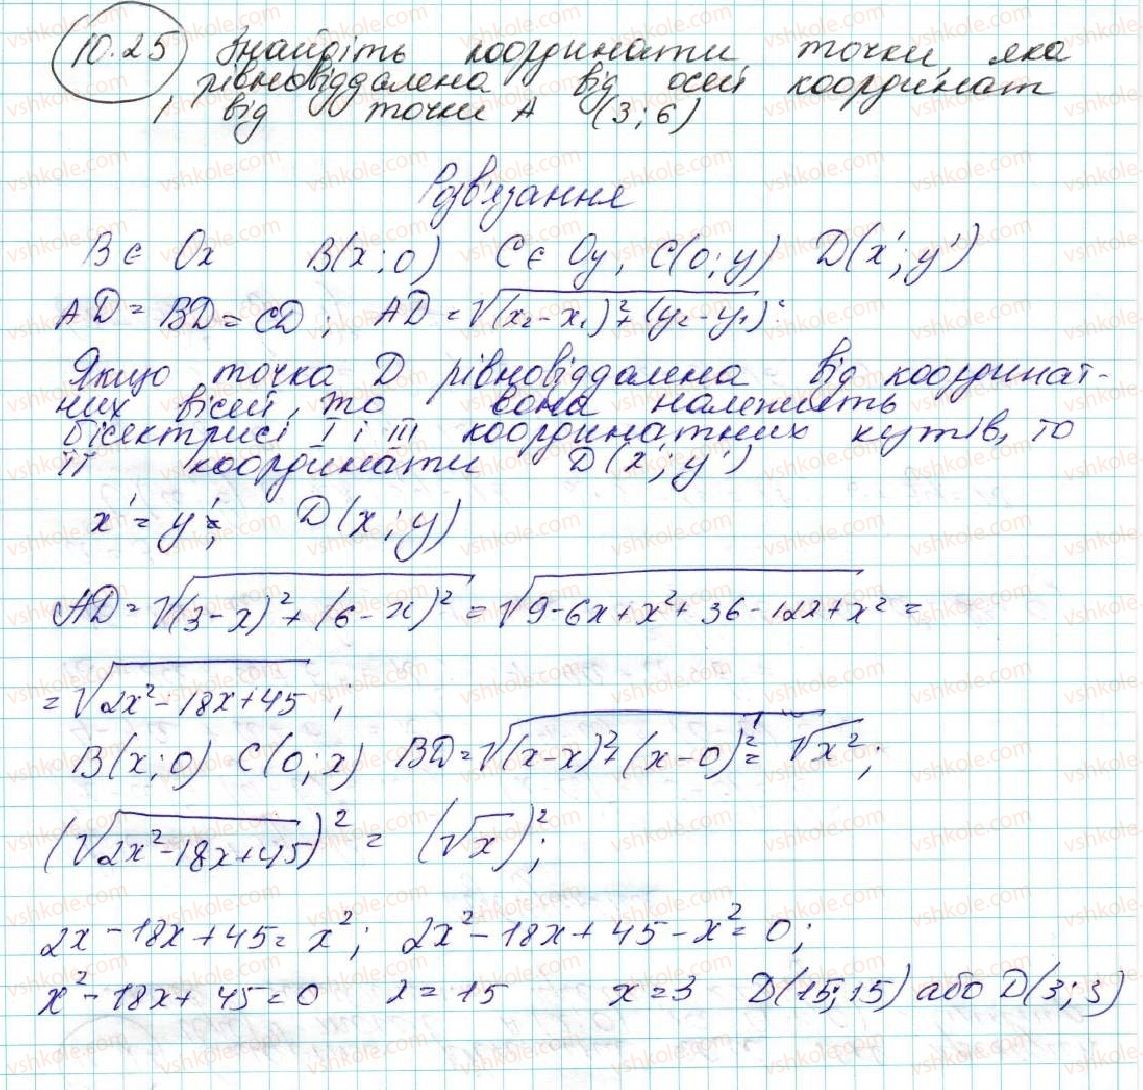 10.25 Знайдіть координати точки, яка
рівновіддалена від осей координат
і від точки A (3;6)
Розв'язання
B є Ox B(x;0) C є Oy, C(0;y) D(x';y')
AD = BD = CD; AD = √(x₂-x₁)²+(y₂-y₁)²
Якщо точка D рівновіддалена від координат-
них вісей, то вона належить
бісектрисі I і III координатних кутів, то
її координати D(x';y')
x' = y'; D(x;y)
AD = √(3-x)²+(6-x)² = √9-6x+x²+36-12x+x² =
= √2x²-18x+45;
B(x;0) C(0;x) BD = √(x-x)²+(x-0)² = √x²;
(√2x²-18x+45)² = (√x)²;
2x-18x+45 = x²; 2x²-18x+45-x² = 0;
x²-18x+45 = 0 x = 15 x = 3 D(15;15) або D(3;3)